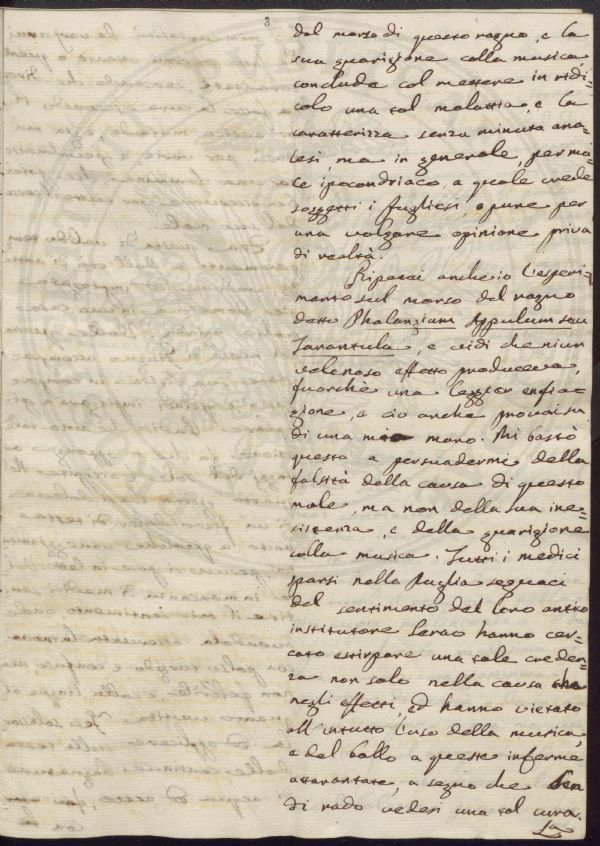 3
dal morso di questo ragno, e la
sua guarigione colla musica,
conclude col mettere in ridi-
colo una tal malattia, e la
caratterizza senza minuta ana-
lesi, ma in generale, per ma-
le ipocondriaco, a quale crede
soggetti i Pugliesi, o pure per
una volgare opinione priva
di realtà.
Ripetei anche io l'esperi-
mento sul morso del ragno
detto Phalangium Appulum seu
Tarantula, e vidi che niun
velenoso effetto produceva,
fuorchè una legger enfia-
gione, e ciò anche provai su
di una mia mano. Mi bastò
questo a persuadermi della
falsità della causa di questo
male, ma non della sua ine-
sistenza, e della guarigione
colla musica. Tutti i medici
sparsi nella Puglia seguaci
del sentimento del loro antico
institutore Serao hanno cer-
cato estirpare una tale creden-
za non solo nella causa
negli effetti, ed hanno vietato
all'intutto l'uso della musica,
e del ballo a queste inferme
attarantate, a segno che
di rado vedesi una tal cura.
La